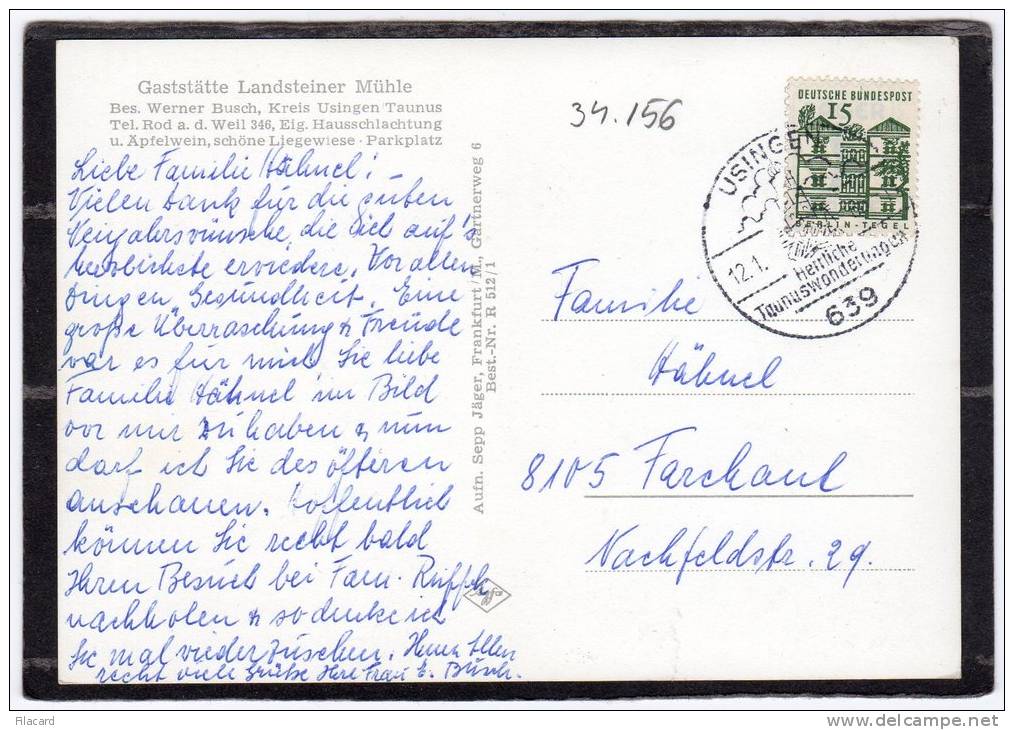 Gaststätte Landsteiner Mühle
Bes. Werner Busch, Kreis Usingen/Taunus
Tel. Rod a. d. Weil 346, Eig. Hausschlachtung
u. Äpfelwein, schöne Liegewiese · Parkplatz
34.156
DEUTSCHE BUNDESPOST
15
BERLIN-TEGEL
USINGEN
12.1.
Herrliche
Tauniswanderungen
639
Liebe Familie Hähnel!
Vielen Dank für die guten
Neujahrswünsche, die ich auf's
herzlichste erwiedere. Vor allen
Dingen, Gesundheit. Eine
große Überraschung & Freude
war es für mich Sie liebe
Familie Hähnel im Bild
vor mir zu haben & nun
darf ich Sie des öfteren
anschauen. Hoffentlich
können Sie recht bald
Ihren Besuch bei Fam.
nachholen & so denke ich
Sie mal wieder zu sehen. Ihnen Allen
recht viele Grüße Ihre Frau E. Busch.
Aufn. Sepp Jäger, Frankfurt/M., Gärtnerweg 6
Best.-Nr. R 512/1
Agfa
Familie
Hähnel
8105 Farchant
Nachfeldstr. 29.
Filacard
www.delcampe.net